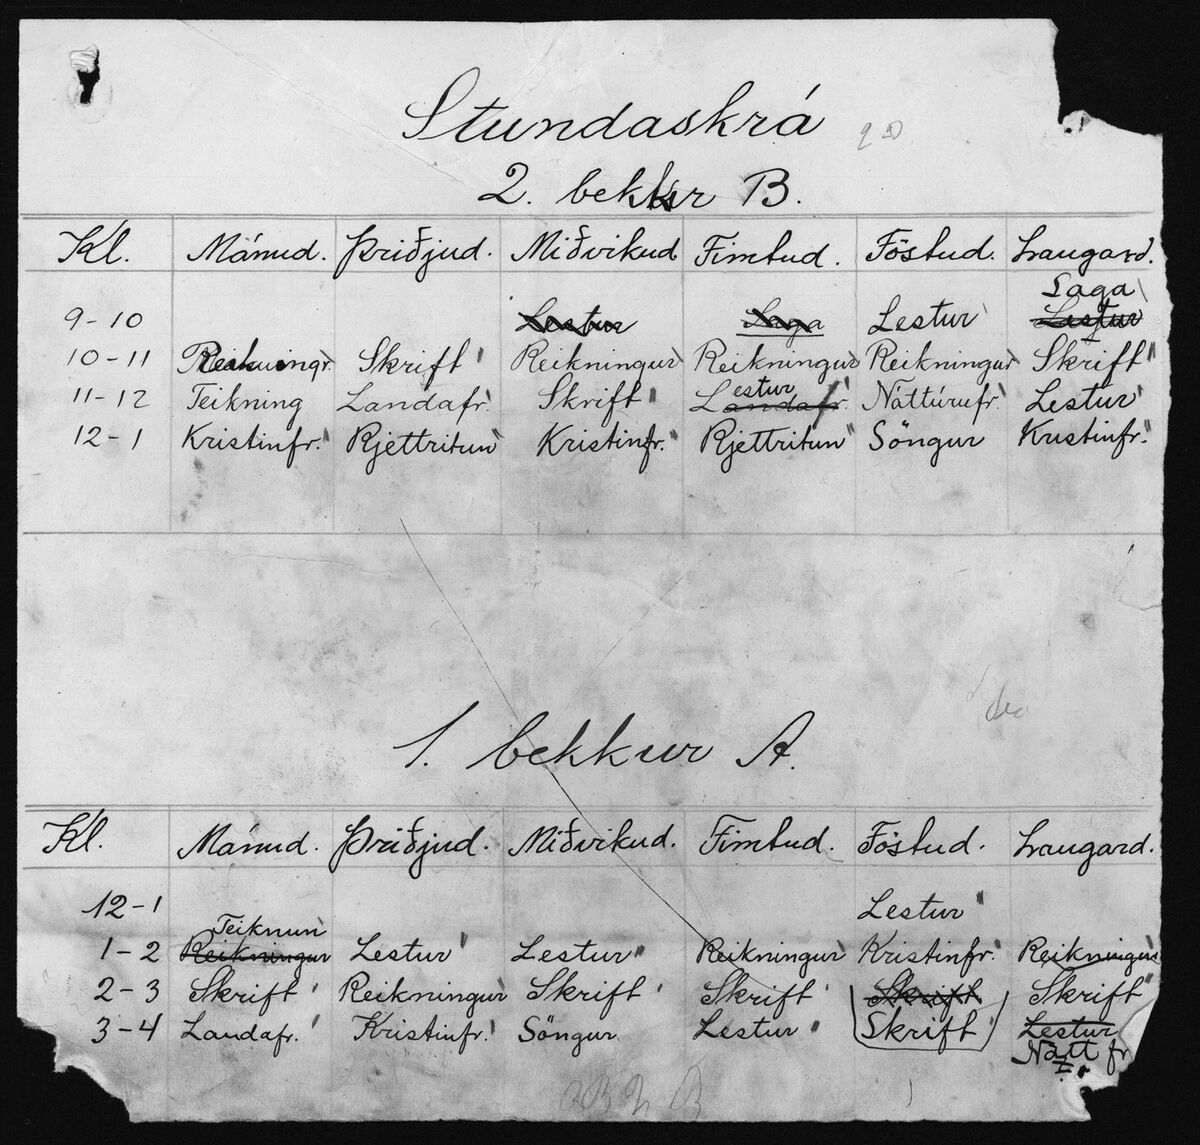 Stundaskrá
2. bekkur B.
Kl. Mánud. Þriðjud. Miðvikud Fimtud. Föstud. Laugard.
Saga
9-10 Lestur Saga Lestur Lestur
10-11 Reikningr. Skrift Reikningur Reikningur Reikningur Skrift
estur
11-12 Teikning Landafr. Skrift Landafr. Nattúrufr. Lestur
12-1 Kristinfr. Rjettritun Kristinfr. Rjettritun Söngur Kristinfr.
1. bekkur A.
Kl. Mánud. Þriðjud. Miðvikud. Fimtud. Föstud. Laugard.
12-1 Lestur
Teiknun
1-2 Reikningur Lestur Lestur Reikningur Kristinfr. Reikningur
2-3 Skrift Reikningur Skrift Skrift Skrift Skrift
3-4 Landafr. Kristinfr. Söngur Lestur Skrift Lestur
Natt fr